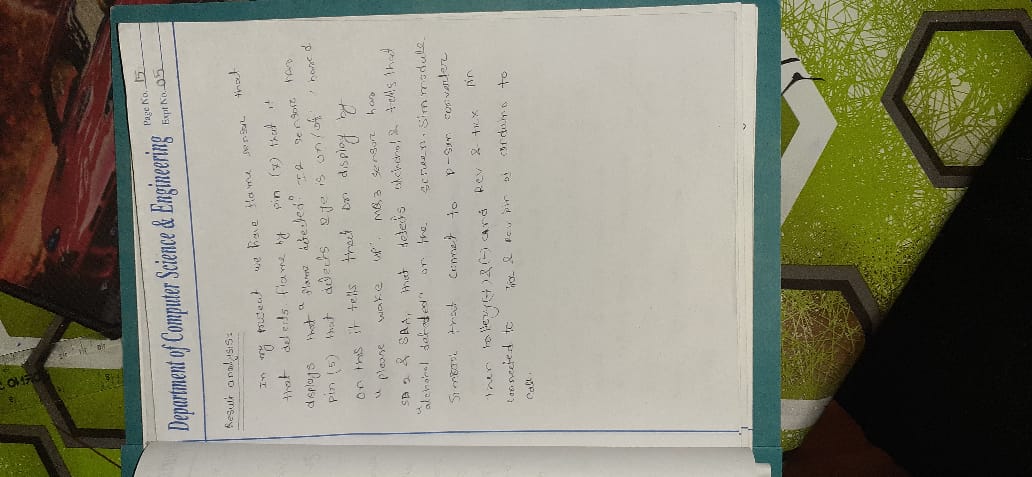 Department of Computer Science & Engineering
Page No. 15
Expt No. 05
Result analysis:
In my project we have flame sensor that
that detects flame by pin (7) that it
displays that "flame detected" IR sensor has
pin (5) that detects eye is on/off, based
on this it tells that on display by
"please wake up". MQ3 sensor has
that detects alchohol & tells that
"alchohol detected" on the screen. Sim module
that connect to converter
then battery (+) & (-) and Rcv & tx pin
connected to & pin of arduino to
call.